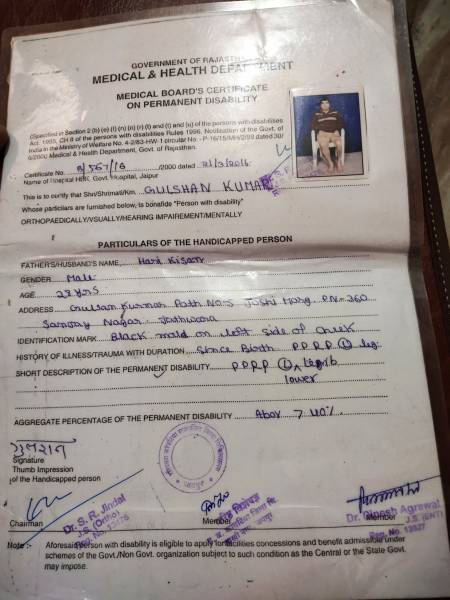 GOVERNMENT OF RAJASTHAN
MEDICAL & HEALTH DEPARTMENT
MEDICAL BOARD'S CERTIFICATE
ON PERMANENT DISABILITY
(Specified in Section 2 (b) (e) (l) (n) (o) (r) (t) and (u) of the persons with disabilities
Act. 1995, CH 8 of the persons with disabilities Rules 1996, Notification of the Govt. of
India in the Ministry of Welfare No. 4-2/83-HW-1 circular No.
6/2000 Medical & Health Department, Govt. of Rajasthan.
Certificate No. 567/16 /2000 dated /3/2016
Name of Hospital HBK Govt. Hospital, Jaipur
This is to certify that Shri/Shrimati/Km. GULSHAN KUMAR
Whose particlars are furnished below, is bonafide "Person with disability"
ORTHOPAEDICALLY/VSUALLY/HEARING IMPAIREMENT/MENTALLY
PARTICULARS OF THE HANDICAPPED PERSON
FATHER'S/HUSBAND'S NAME, Hari Kisan
GENDER Male
AGE yrs
ADDRESS Path No-5 Joshi Marg, P.No-260
Nagar
IDENTIFICATION MARK Black mold on left side of Cheek
HISTORY OF ILLNESS/TRAUMA WITH DURATION Since Birth P.P.R.P (L) leg
SHORT DESCRIPTION OF THE PERMANENT DISABILITY P.P.R.P (L) lower
AGGREGATE PERCENTAGE OF THE PERMANENT DISABILITY 40%
Signature
Thumb Impression
of the Handicapped person
Chairman
Dr. S. R. Jindal
J.S. (Ortho)
Member
Member
Dr. Dinesh Agrawal
J.S. (ENT)
Note :- Aforesaid Person with disability is eligible to apply for facilities concessions and benefit admissible under
schemes of the Govt./Non Govt. organization subject to such condition as the Central or the State Govt.
may impose.